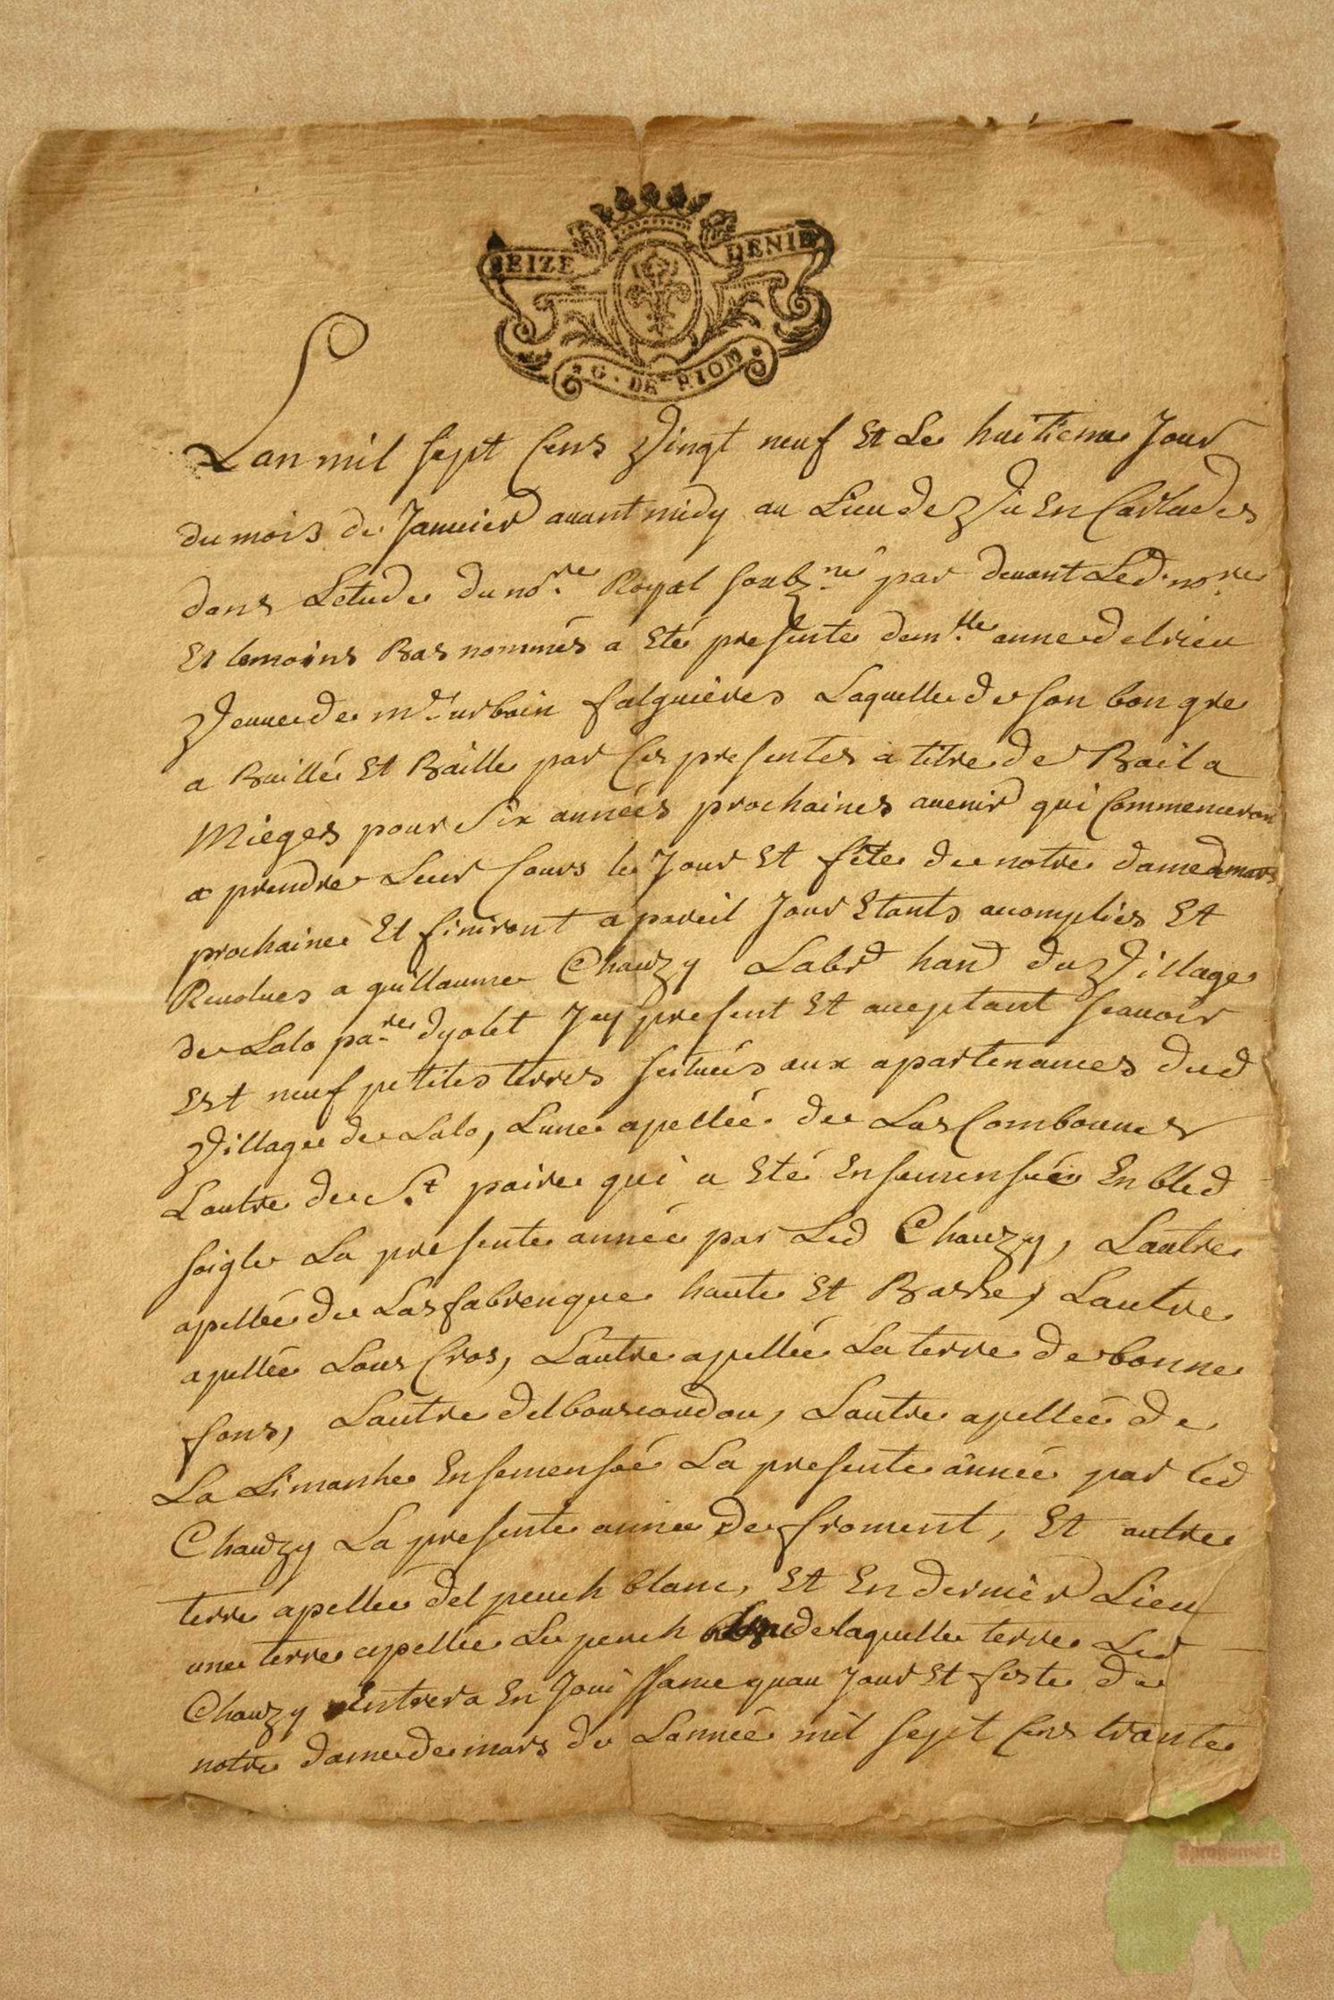 SEIZE DENIE
G. DE RIOM
Lan mil sept Cens Vingt neuf Et Le huitieme Jour
du mois de Janvier avant midy au Lieu de Vic En Carlades
dans Letude du no.re Royal soubz.né par devant Led. no.re
Et temoins Bas nommés a Eté presente dem.lle anne delrieu
Veuve de m.r urbain falguieres Laquelle de son bon gre
a Baillé Et Baille par Ces presentes a titre de Bail a
Mieges pour Six années prochaines avenir qui Commenceron
a prendre Leur Cours le Jour Et fête de notre dame de mars
prochaine Et finiront a pareil Jour Etants acomplies Et
Revolues a guillaume Chauzy Labr hand du Village
de Lalo pa.re dyolet Jcy present Et aceptant scavoir
Est neuf petites terres scituées aux apartenances dud
Village de Lalo, Lune apellée de Las Combounes
Lautre de S.t paire qui a Eté Ensemensée En bled
soigle La presente année par Led Chauzy, Lautre
apellée de Las fabrenque haute Et Basse, Lautre
apellée Lous Cros, Lautre apellée La terre de bonne
fons, Lautre del bouscoudou, Lautre apellée de
La Limanhe Ensemensée La presente année par led
Chauzy La presente annee de froment, Et autre
terre apellée del peuch blanc, Et En dernier Lieu
une terre apellée Le peuch de laquelle terre Led
Chauzy Entrera En Jouissance quau Jour Et feste de
notre dame de mars de Lannée mil sept Cens trante